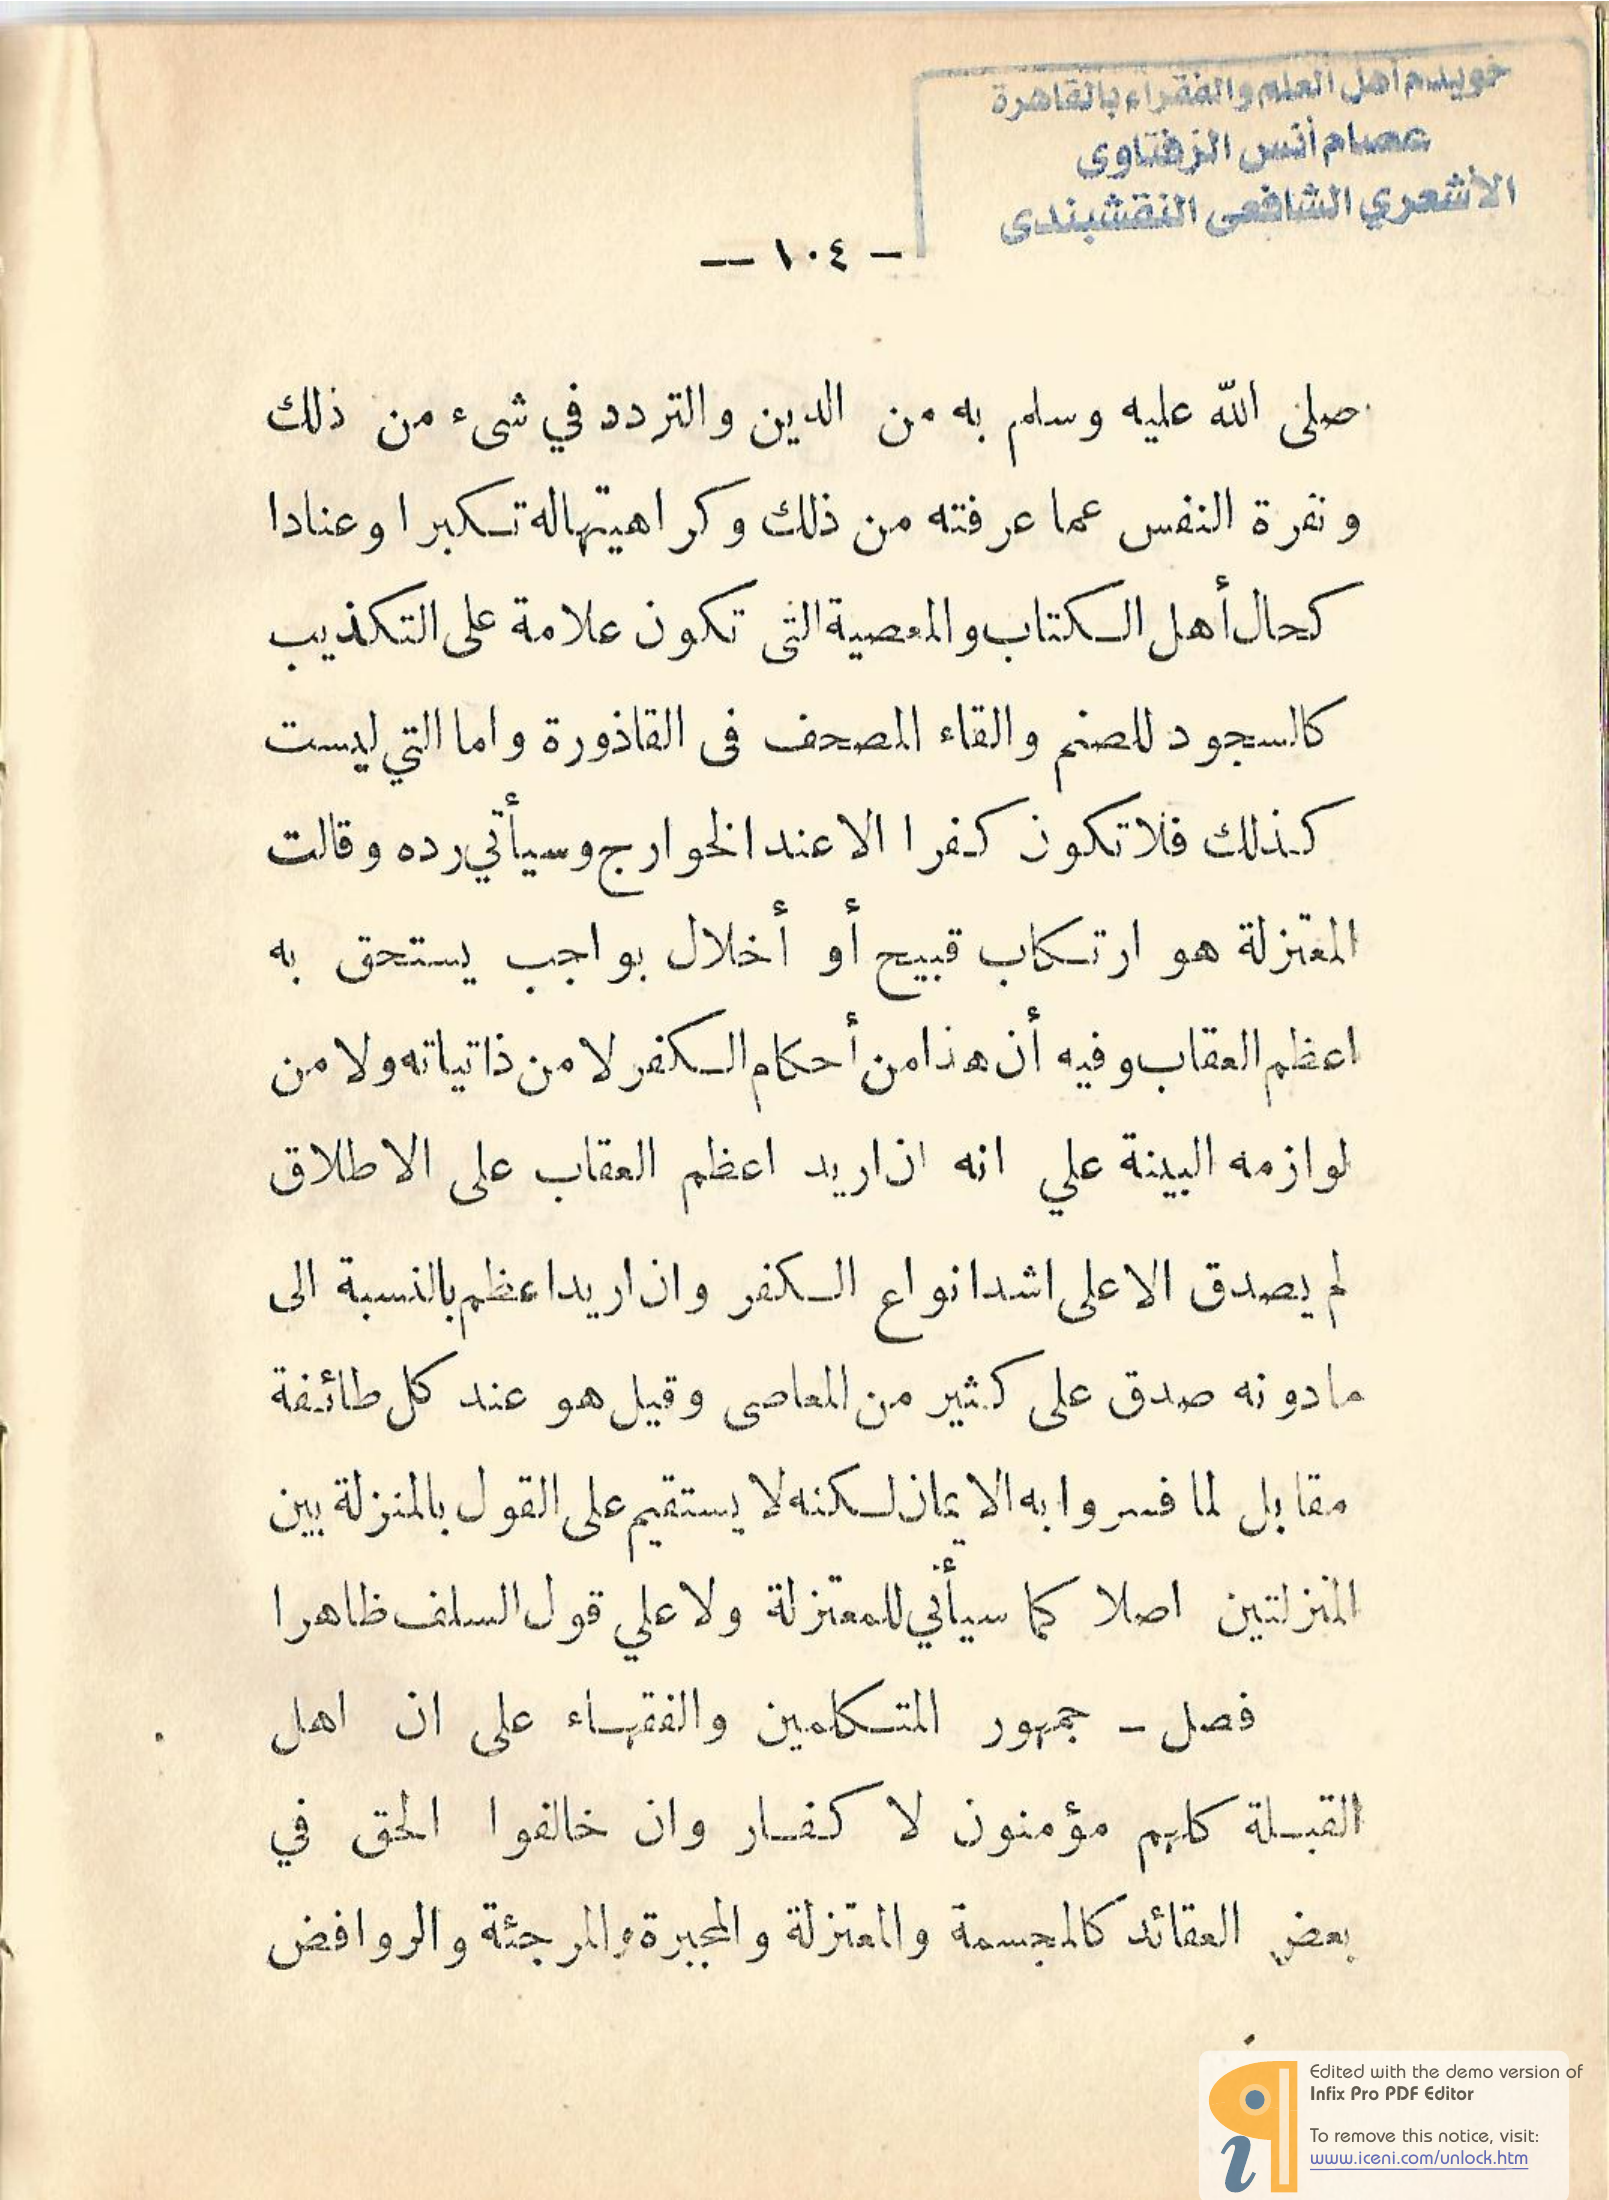 خويدم أهل العلم والفقراء بالقاهرة
عصام أنس الزفتاوى
الأشعري الشافعى النقشبندى
— ١٠٤ —
صلى الله عليه وسلم به من الدين والتردد في شىء من ذلك
ونفرة النفس عما عرفته من ذلك وكراهيتها له تكبرا وعنادا
كحال أهل الكتاب والمعصية التى تكون علامة على التكذيب
كالسجود للصنم والقاء المصحف فى القاذورة واما التي ليست
كذلك فلا تكون كفرا الا عند الخوارج وسيأتي رده وقالت
المعتزلة هو ارتكاب قبيح أو أخلال بواجب يستحق به
اعظم العقاب وفيه أن هذا من أحكام الكفر لا من ذاتياته ولا من
لوازمه البينة علي انه ان اريد اعظم العقاب على الاطلاق
لم يصدق الا على اشد انواع الكفر وان اريد اعظم بالنسبة الى
مادونه صدق على كثير من المعاصى وقيل هو عند كل طائفة
مقابل لما فسروا به الايمان لكنه لا يستقيم على القول بالمنزلة بين
المنزلتين اصلا كما سيأتي للمعتزلة ولا علي قول السلف ظاهرا
فصل – جمهور المتكلمين والفقهاء على ان اهل
القبلة كلهم مؤمنون لا كفار وان خالفوا الحق في
بعض العقائد كالمجسمة والمعتزلة والمجبرة والمرجئة والروافض
Edited with the demo version of
Infix Pro PDF Editor
To remove this notice, visit:
www.iceni.com/unlock.htm